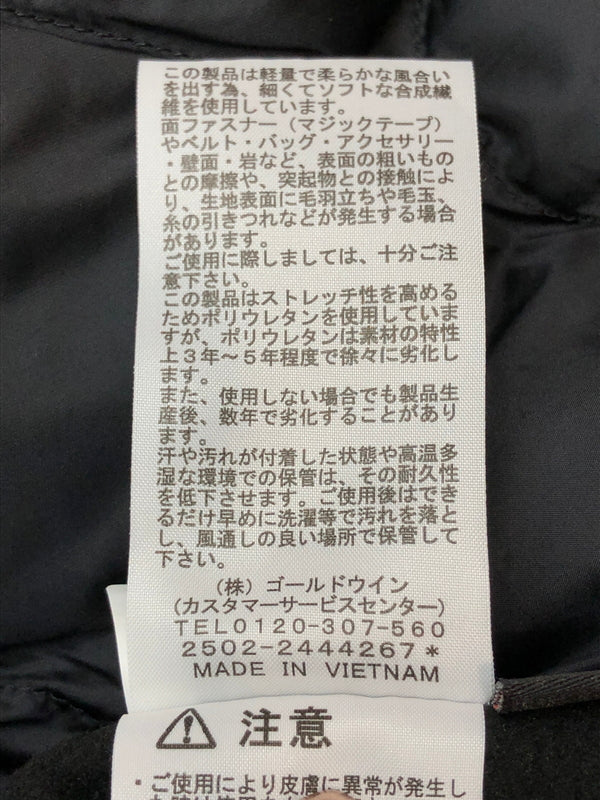 この製品は軽量で柔らかな風合い
を出す為、細くてソフトな合成繊
維を使用しています。
面ファスナー（マジックテープ）
やベルト・バッグ・アクセサリー
・壁面・岩など、表面の粗いもの
との摩擦や、突起物との接触によ
り、生地表面に毛羽立ちや毛玉、
糸の引きつれなどが発生する場合
があります。
ご使用に際しましては、十分ご注
意下さい。
この製品はストレッチ性を高める
ためポリウレタンを使用していま
すが、ポリウレタンは素材の特性
上３年～５年程度で徐々に劣化し
ます。
また、使用しない場合でも製品生
産後、数年で劣化することがあり
ます。
汗や汚れが付着した状態や高温多
湿な環境での保管は、その耐久性
を低下させます。ご使用後はでき
るだけ早めに洗濯等で汚れを落と
し、風通しの良い場所で保管して
下さい。
（株）ゴールドウイン
（カスタマーサービスセンター）
TEL0120-307-560
2502-2444267*
MADE IN VIETNAM
注意
・ご使用により皮膚に異常が発生し